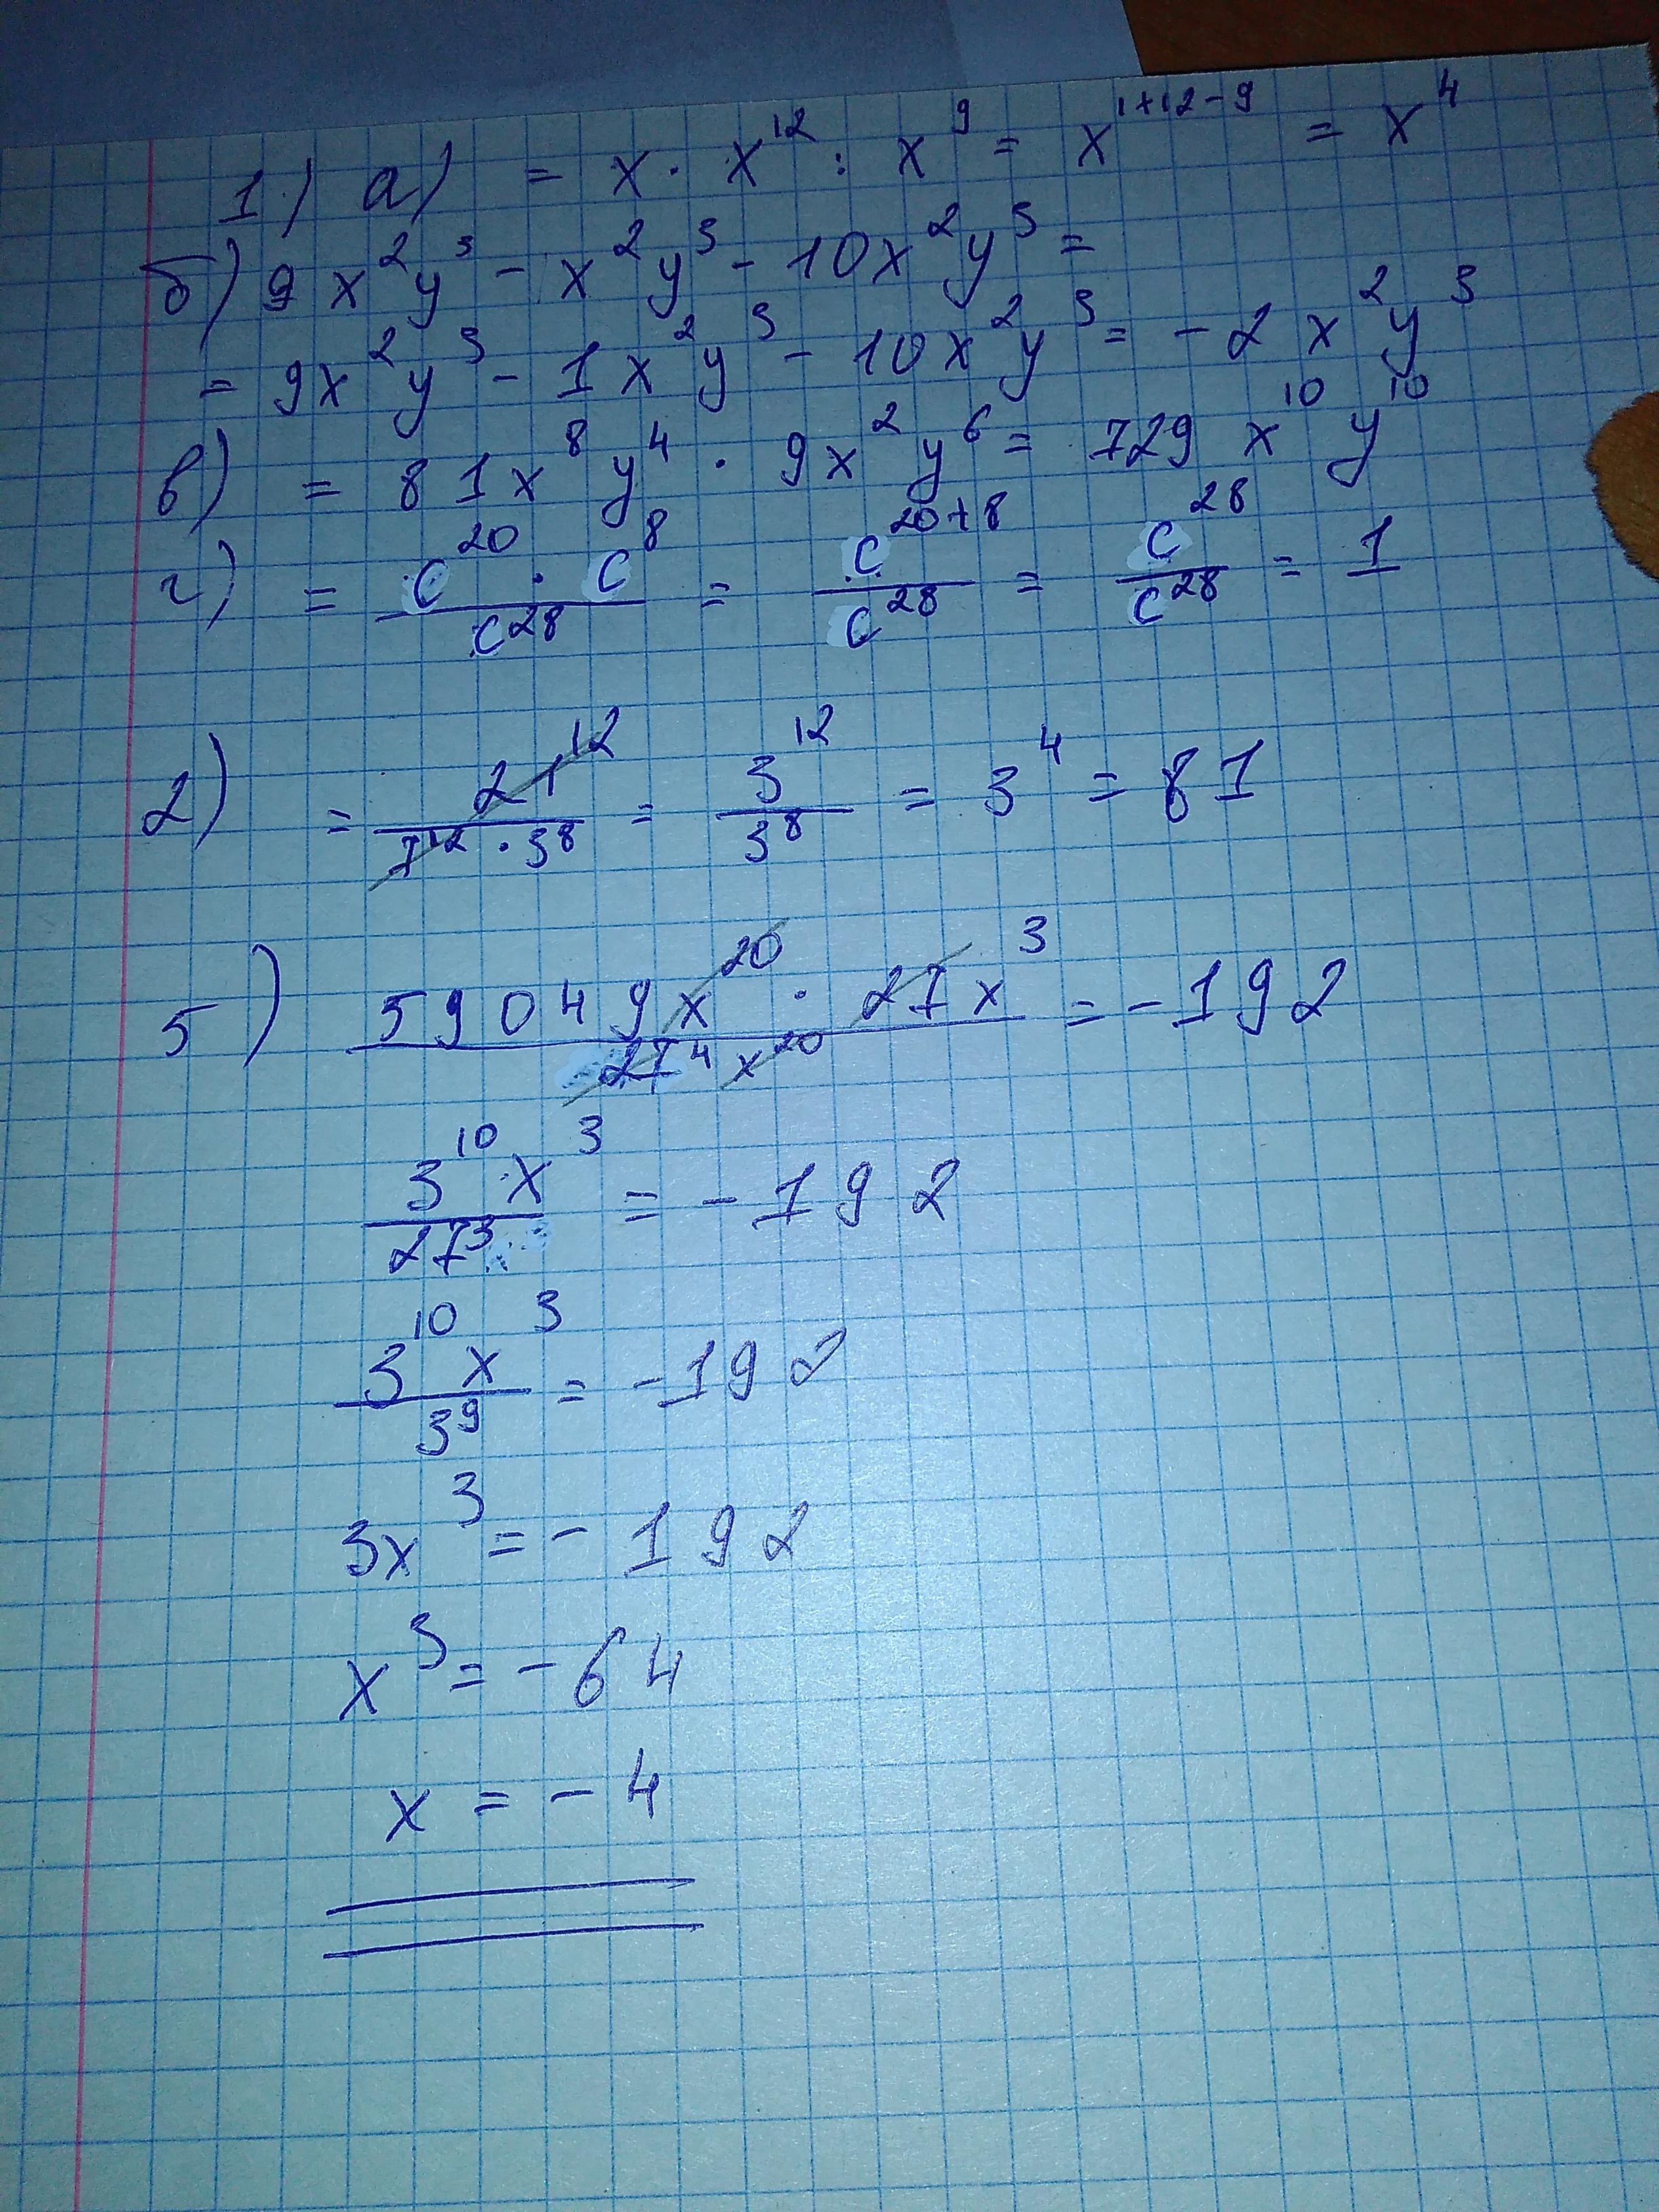 1.) а) = x · x¹² : x⁹ = x¹⁺¹²⁻⁹ = x⁴
б) 9x²y³ - x²y³ - 10x²y³ =
= 9x²y³ - 1x²y³ - 10x²y³ = -2x²y³
в) = 81x⁸y⁴ · 9x²y⁶ = 729 x¹⁰ y¹⁰
г) = c²⁰ · c⁸ / c²⁸ = c²⁰⁺⁸ / c²⁸ = c²⁸ / c²⁸ = 1
2) = 21¹² / 7¹² · 3⁸ = 3¹² / 3⁸ = 3⁴ = 81
5) 59049x²⁰ · 27x³ / 27⁴x²⁰ = -192
3¹⁰ · x³ / 27³ = -192
3¹⁰ x³ / 3⁹ = -192
3x³ = -192
x³ = -64
x = -4